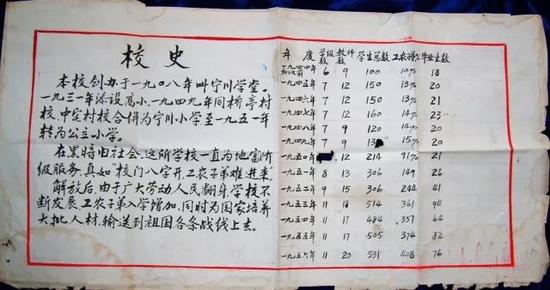 校史
本校创办于一九〇八年叫宁川学堂。
一九三一年添设高小、一九四九年同桥亭村
校、中定村校合併为宁川小学至一九五一年
转为公立小学。
在黑暗旧社会、这所学校一直为地富阶
级服务,真如"校门八字开、工农子弟难进来"
解放后,由于广大劳动人民翻身学校不
断发展、工农子弟入学增加,同时为国家培养
大批人材,输送到祖国各条战线上去。
年度 学级数 教师数 学生总数 工农 毕业生数
一九四四年 6 9 100 10% 18
一九四五年 7 12 150 13% 20
一九四六年 7 12 150 13% 21
一九四七年 7 12 160 14% 23
一九四八年 7 9 120 14% 20
一九四九年 7 9 15% 20
一九五〇年 12 214 71% 21
一九五一年 8 13 306 149 26
一九五二年 9 15 306 244 41
一九五三年 11 18 514 361 94
一九五四年 11 17 484 357 64
一九五五年 11 17 505 374 82
一九五六年 11 20 531 408 76